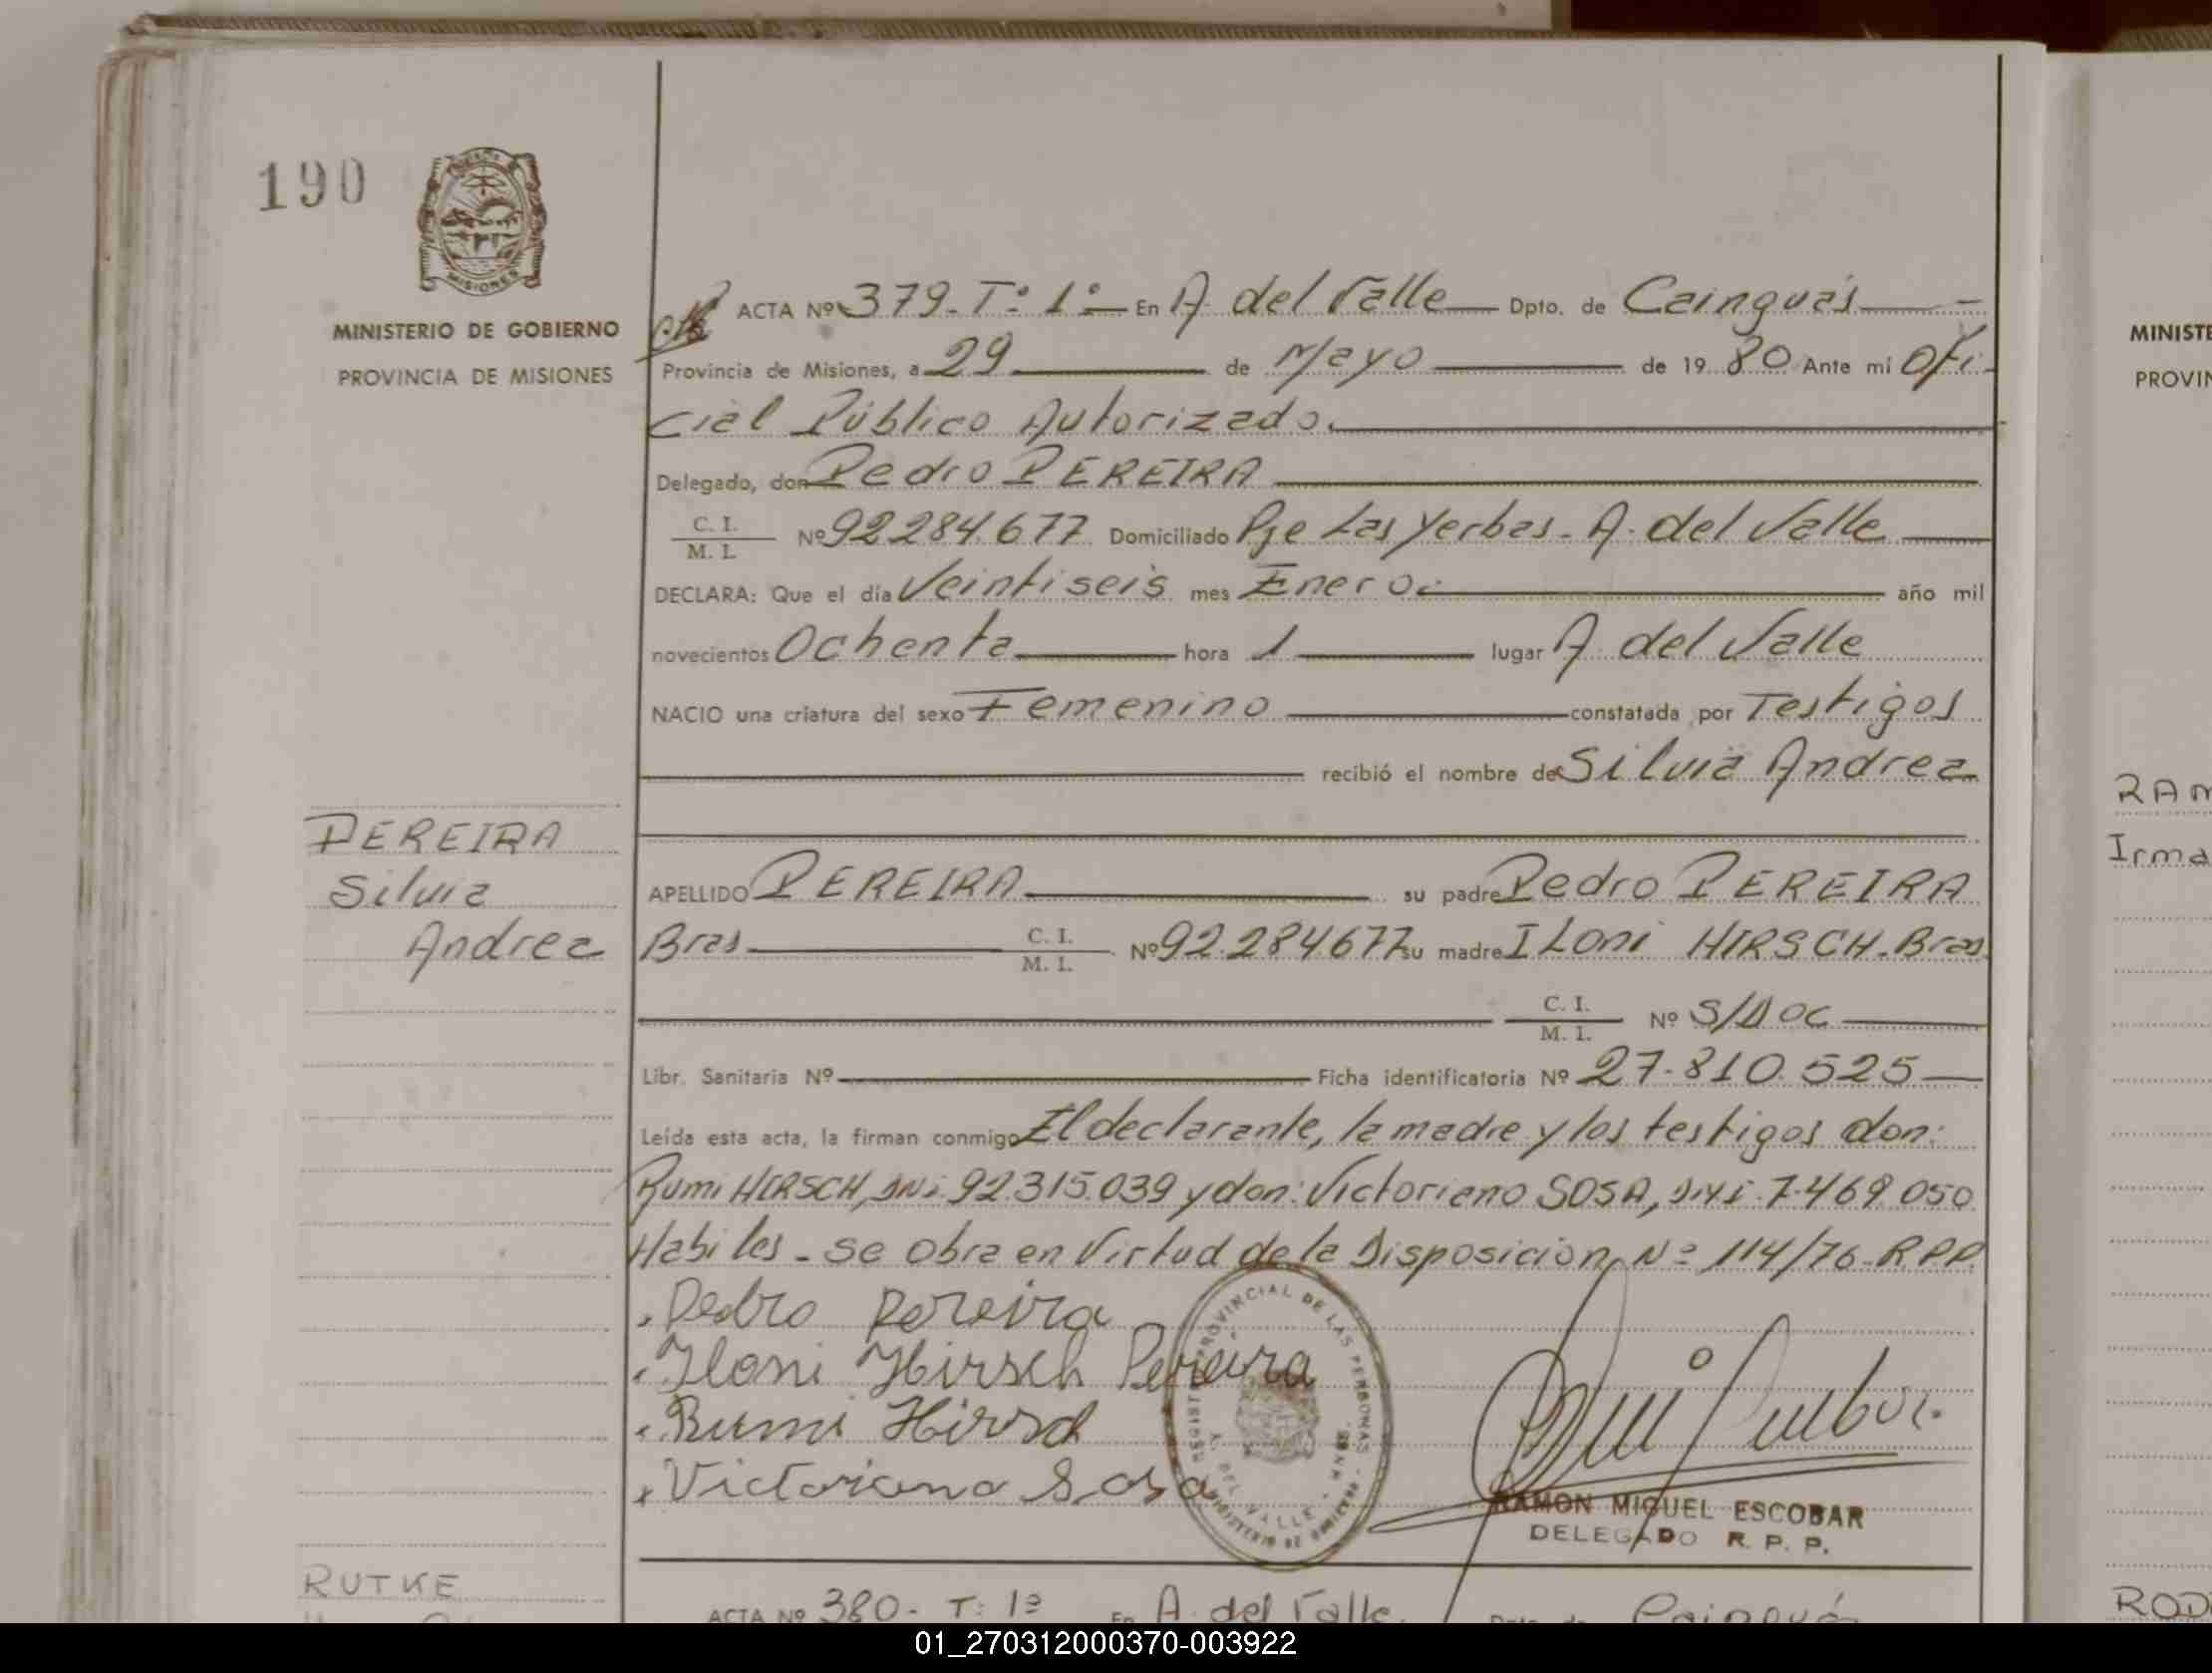 190
MISIONES
MINISTERIO DE GOBIERNO
PROVINCIA DE MISIONES
ACTA Nº 379-Tº 1º En A. del Valle Dpto. de Cainguás
Provincia de Misiones, a 29 de Mayo de 1980 Ante mi Ofi-
cial Público Autorizado.
Delegado, don Pedro PEREIRA
C. I.
M. I. Nº 92284.677 Domiciliado Pje Las Yerbas - A. del Valle
DECLARA: Que el día Veintiseis mes Enero año mil
novecientos Ochenta hora 1 lugar A. del Valle
NACIO una criatura del sexo Femenino constatada por Testigos
recibió el nombre de Silvia Andrea
PEREIRA
Silvia
Andrea
APELLIDO PEREIRA su padre Pedro PEREIRA
Bras C. I.
M. I. Nº 92.284.677 su madre ILoni HIRSCH-Bras
C. I.
M. I. Nº S/Doc
Libr. Sanitaria Nº Ficha identificatoria Nº 27-810.525
Leída esta acta, la firman conmigo El declarante, la madre y los testigos don:
Rumi HIRSCH, DNI 92.315.039 y don: Victoriano SOSA, DNI 7.469.050
Habiles - se obra en Virtud de la Disposición Nº 114/76-R.P.P.
Pedro Pereira
Iloni Hirsch Pereira
Rumi Hirsch
Victoriano Sosa
PROVINCIAL DE LAS PERSONAS
A. DEL VALLE
RAMON MIGUEL ESCOBAR
DELEGADO R. P. P.
RUTKE
ACTA Nº 380- T: 1º En A. del Valle Dpto. de Cainguás
MINISTE
PROVIN
RAM
Irma
RODI
01_270312000370-003922